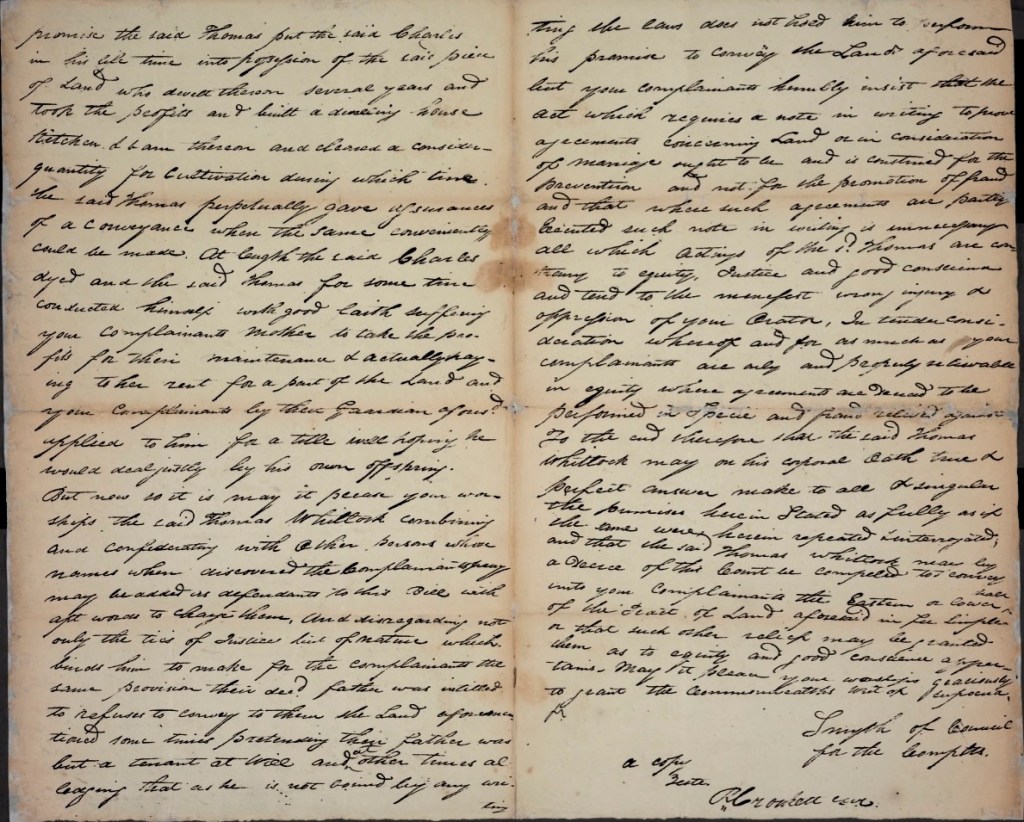 promise the said Thomas put the said Charles
in his life time into possession of the said piece
of Land who dwelt thereon several years and
took the profits and built a dweling house
Kitchen & barn thereon and cleared a consider-
quantity for Cultivation during which time
the said Thomas perpetually gave assurances
of a conveyance when the same conveniently
could be made. At length the said Charles
dyed and the said Thomas for some time
conducted himself with good faith suffering
your Complainants Mother to take the pro-
fits for their maintenance & actually pay-
ing to her rent for a part of the Land and
your Complainants by their Guardian aforesd.
applied to him for a title well hoping he
would deal justly by his own offspring.
But now so it is may it please your wor-
ships the said Thomas Whittock combining
and confederating with other persons whose
names when discovered the Complainants pray
may be added as defendants to this Bill with
apt words to charge them, And disregarding not
only the ties of Justice but of nature which
binds him to make for the complainants the
same provision their decd. father was intitled
to refuses to convey to them the Land aforemen-
tioned some times pretending their father was
but a tenant at Will and at other times al
ledging that as he is not bound by any wri-
ting
ting the laws does not hold him to perform
his promise to convey the Land aforesaid
but your complainants humbly insist that the
act which requires a note in writing to prove
agreements concerning Land or in consideration
of marriage ought to be and is construed for the
prevention and not for the promotion of fraud
and that where such agreements are partly
Executed such note in writing is unnecessary
all which actings of the sd. Thomas are con
trary to equity, Justice and good conscience
and tend to the manefest wrong injury &
oppression of your Orator, In tender consi-
deration whereof and for as much as your
complainants are only and properly relievable
in equity where agreements are decreed to be
performed in Specie and fraud relieved against
To the end therefore that the said Thomas
Whittock may on his corporal Oath true &
perfect answer make to all & singular
the premises herein Stated as fully as if
the same were herein repeated & interrogated,
and that the said Thomas Whittock may by
a Decree of this Court be compeled to convey
unto your Complainants the Eastern or lower half
of the Tract of Land aforesaid in fee simple
or that such other relief may be granted
them as to equity and good conscience apper-
tains. May it please your worships graciously
to grant the Commonwealths writ of
Smyth of Council
for the Complts.
a copy
Teste